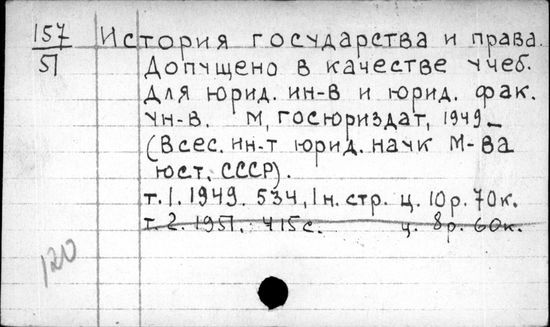 157
51
История государства и права.
Допущено в качестве учеб.
для юрид. ин-в и юрид. фак.
ун-в. М, госюриздат, 1949_
(Всес. ин-т юрид. наук М-ва
юст. СССР).
т.1. 1949. 534, 1н. стр. ц. 10р. 70к.
т.2. 1951. 415с. ц. 8р. 60к.
120